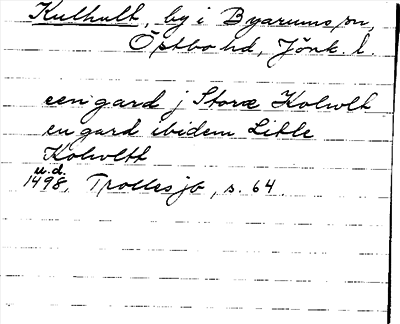 Kulhult, by i Byarums sn,
Östbo hd, Jönk. l.
een gard j Storæ Kolwlt
en gard ibidem Litle
Kolwltt
u.d.
1498, Trollesjö, s. 64.